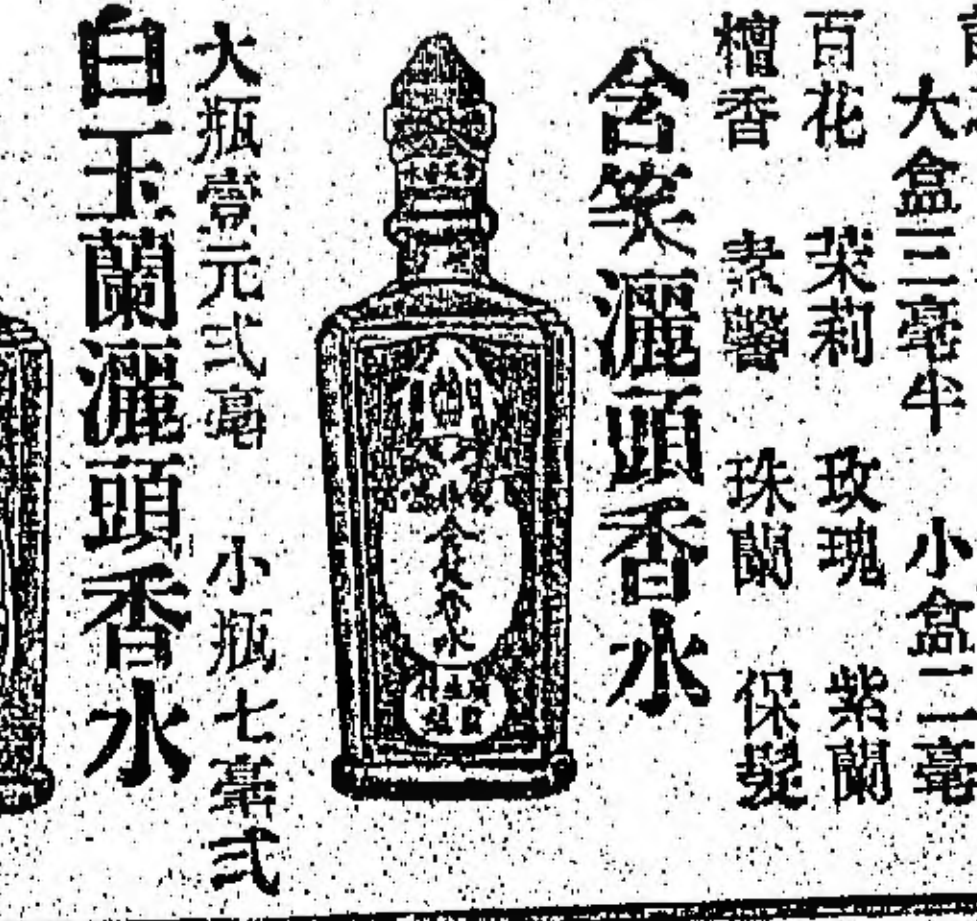 大盒三毫半 小盒二毫
百花 茉莉 玫瑰 紫蘭
檀香 素馨 珠蘭 保髮
含笑灑頭香水
大瓶壹元弍毫 小瓶七毫弍
白玉蘭灑頭香水